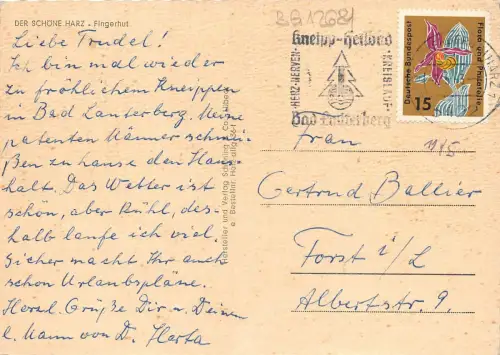 DER SCHÖNE HARZ - Fingerhut
Liebe Trudel!
Ich bin mal wieder
zu fröhlichem Kneippen
in Bad Lauterberg. Meine
patenten Männer schmei-
ßen zu hause den Haus-
halt. Das Wetter ist
schön, aber kühl, des-
halb laufe ich viel.
Sicher macht Ihr auch
schon Urlaubspläne.
Herzl. Grüße Dir u. Deinem
l. Mann von D. Herta
Hersteller und Verlag Schöning & Co.
Bestellnr.
Kneipp-Heilbad
HERZ-NERVEN-
KREISLAUF
Bad Lauterberg
Deutsche Bundespost
Flora und Philatelie
15
Frau
Gertrud Ballier
Forst i/L
Albertstr. 9.